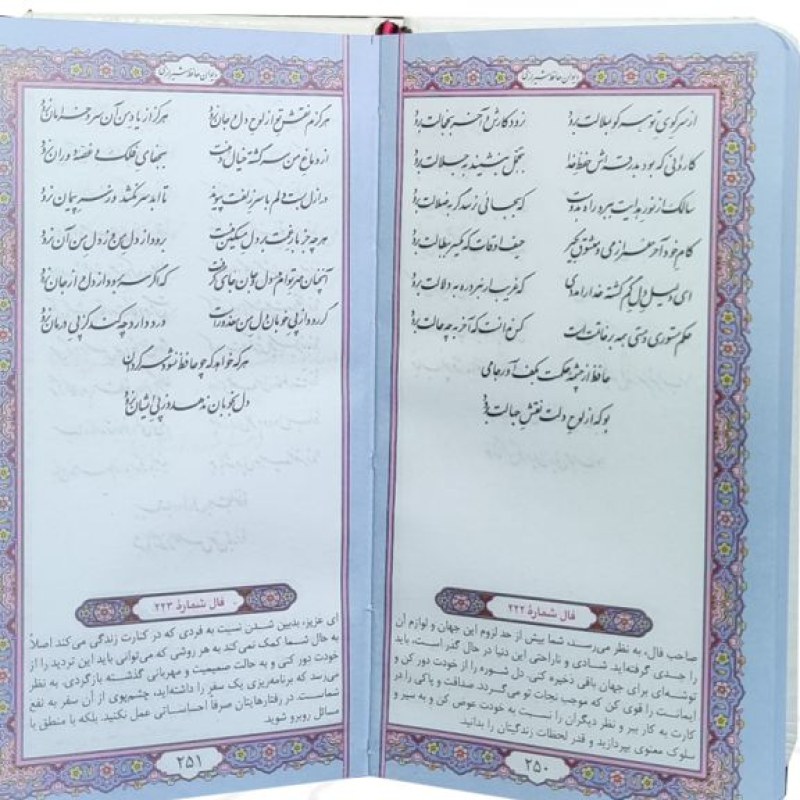 دیوان حافظ شیرازی
از سر کوی تو هر کو به ملالت برود
نرود کارش و آخر به خجالت برود
کاروانی که بود بدرقه‌اش حفظ خدا
به تجمل بنشیند به جلالت برود
سالک از نور هدایت ببرد راه به دوست
که بجائی نرسد گر به ضلالت برود
کام خود آخر عمر از می و معشوق بگیر
حیف اوقات که یکسر به بطالت برود
ای دلیل دل گم گشته خدا را مددی
که غریب ار نبرد ره به دلالت برود
حکم مستوری و مستی همه بر خاتمت است
کس ندانست که آخر به چه حالت برود
حافظ از چشمه حکمت بکف آور جامی
بو که از لوح دلت نقش جهالت برود
فال شمارهٔ ۲۲۲
صاحب فال، به نظر می‌رسد، شما بیش از حد لزوم این جهان و لوازم آن
را جدی گرفته‌اید. شادی و ناراحتی این دنیا در حال گذر است، باید
توشه‌ای برای جهان باقی ذخیره کنی. دل شوره را از خودت دور کن و
ایمانت را قوی کن که موجب نجات تو می‌گردد. صداقت و پاکی را در
کارت به کار ببر و نظر دیگران را نسبت به خودت عوض کن و به سیر و
سلوک معنوی بپردازید و قدر لحظات زندگیتان را بدانید.
۲۵۰
دیوان حافظ شیرازی
هرگزم نقش تو از لوح دل و جان نرود
هرگز از یاد من آن سرو خرامان نرود
از دماغ من سرگشته خیال دهنت
بجفای فلک و غصه دوران نرود
در ازل بست دلم با سر زلفت پیوند
تا ابد سر نکشد وز سر پیمان نرود
هر چه جز بار غمت بر دل مسکین منست
برود از دل من وز دل من آن نرود
آنچنان مهر توام در دل و جان جای گرفت
که اگر سر برود از دل و از جان نرود
گر رود از پی خوبان دل من معذورست
درد دارد چه کند کز پی درمان نرود
هر که خواهد که چو حافظ نشود سرگردان
دل بخوبان ندهد وز پی ایشان نرود
فال شمارهٔ ۲۲۳
ای عزیز، بدبین شدن نسبت به فردی که در کنارت زندگی می‌کند اصلاً
به حال شما کمک نمی‌کند به هر روشی که می‌توانی باید این تردید را از
خودت دور کنی و به حالت صمیمیت و مهربانی گذشته بازگردی. به نظر
می‌رسد که برنامه‌ریزی یک سفر را داشته‌اید، چشم‌پوی از آن سفر به نفع
شماست. در رفتارهایتان صرفاً احساساتی عمل نکنید. بلکه با منطق با
مسائل روبرو شوید.
۲۵۱